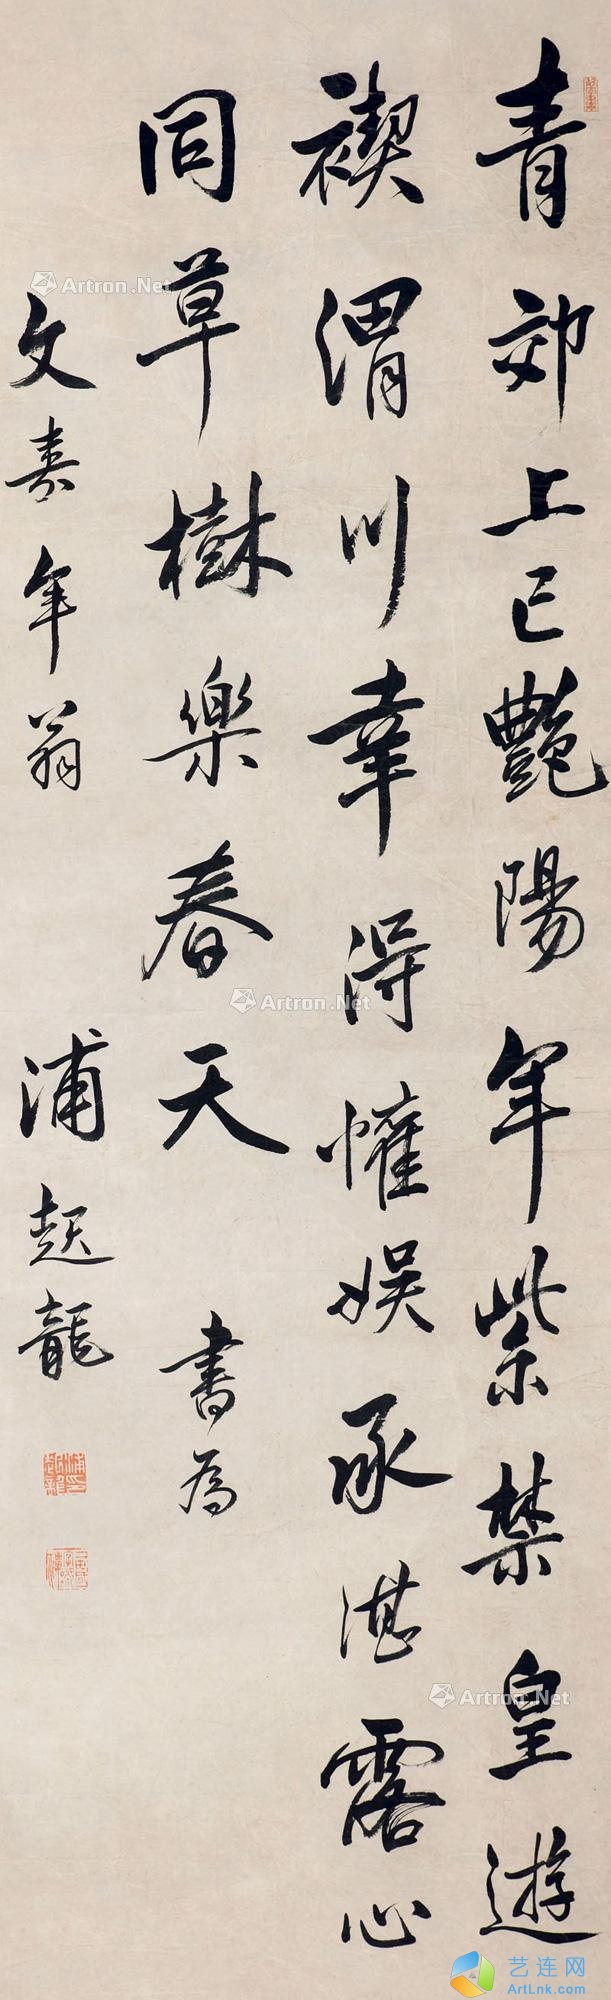 青郊上巳艷陽年紫禁皇遊
禊渭川幸得懽娛承湛露心
同草樹樂春天 書為
文年翁 浦起龍
Artron.Net
Artron.Net
Artron.Net
艺连网
ArtLink.com